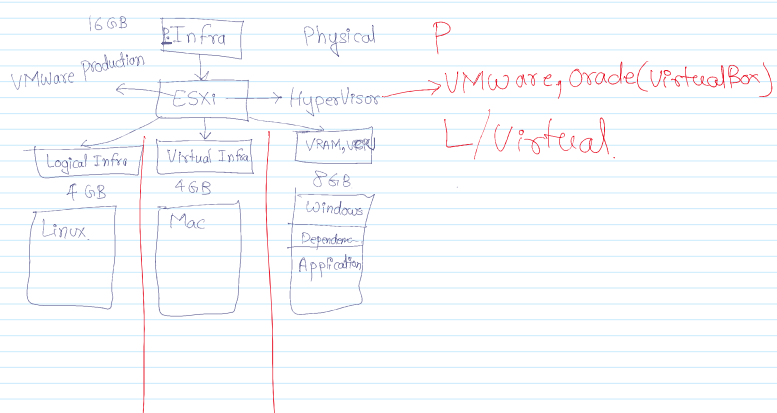 16GB P.Infra Physical P
VMware production
ESXi HyperVisor VMware, Oracle(VirtualBox)
L/Virtual
Logical Infra Virtual Infra VRAM, VCPU
4 GB 4GB 8GB
Linux. Mac Windows
Dependenc
Application